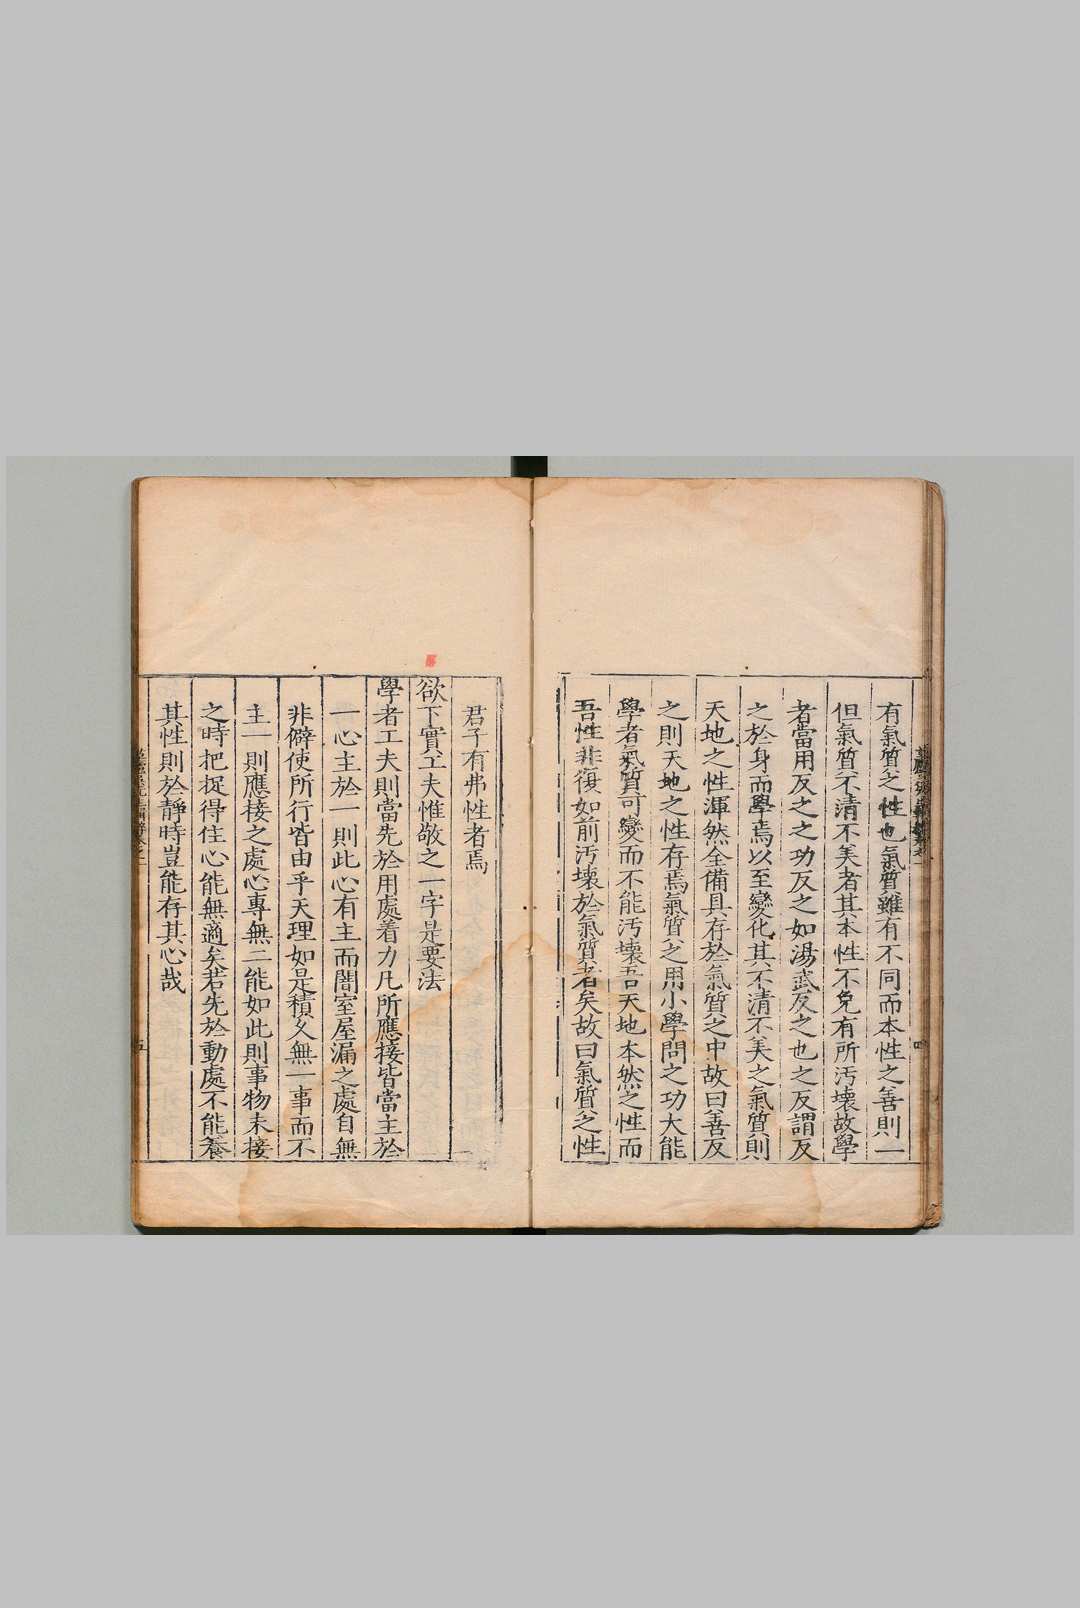 有氣質之性也氣質雖有不同而本性之善則一
但氣質不清不美者其本性不免有所汚壞故學
者當用反之之功反之如湯武反之也之反謂反
之於身而學焉以至變化其不清不美之氣質則
天地之性渾然全備具存於氣質之中故曰善反
之則天地之性存焉氣質之用小學問之功大能
學者氣質可變而不能汚壞吾天地本然之性而
吾性非復如前汚壞於氣質者矣故曰氣質之性
四
君子有弗性者焉
欲下實工夫惟敬之一字是要法
學者工夫則當先於用處着力凡所應接皆當主於
一心主於一則此心有主而闇室屋漏之處自無
非僻使所行皆由乎天理如是積久無一事而不
主一則應接之處心專無二能如此則事物未接
之時把捉得住心能無適矣若先於動處不能養
其性則於靜時豈能存其心哉
五